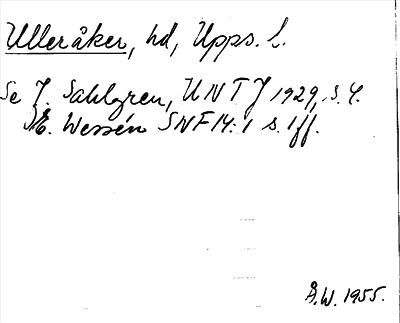 Ulleråker, hd, Upps. l.
Se J. Sahlgren, UNTJ 1929, s. 4.
E. Wessén SNF 14:1 s. 1 ff.
Å.W. 1955.